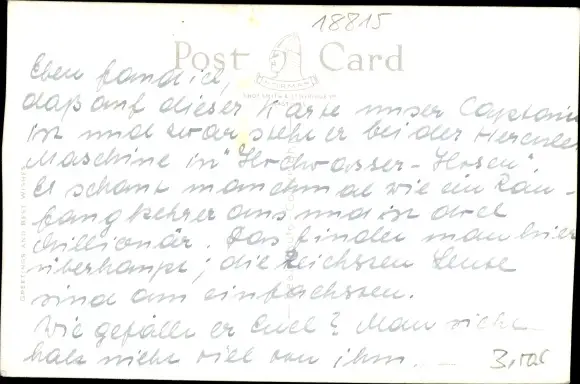 18815
Post Card
Eben fand ich,
daß auf dieser Karte unser Captain
ist und zwar steht er bei der Hercules
Maschine in "Hochwasser-Hosen".
Er schaut manchmal wie ein Rau-
fangkehrer aus und ist doch
Millionär. Das findet man hier
überhaupt; die reichsten Leute
sind am einfachsten.
Wie gefällt er Euch? Man sieht
halt nicht viel von ihm. –
GREETINGS AND BEST WISHES